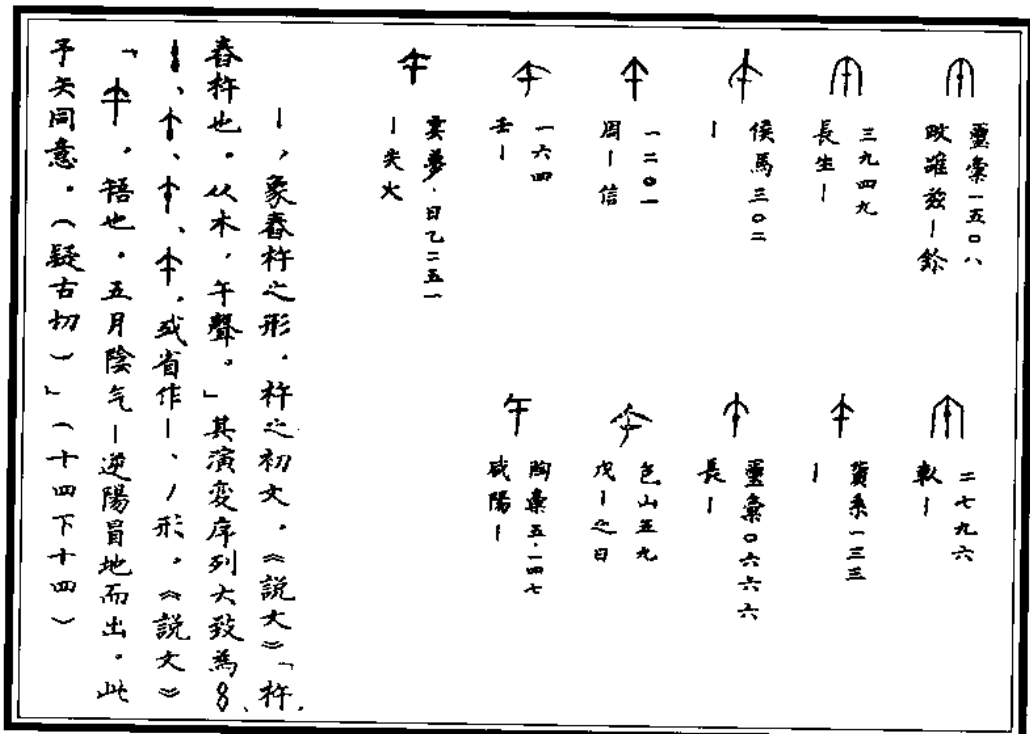 璽彙一五〇八
敀㢑兹丨鉨
三九四九
長生丨
侯馬三〇二
丨
一二〇一
周丨信
一六四
壬丨
雲夢·日乙二五一
丨失火
二七九六
丨
貨系一三三
丨
璽彙〇六六六
長丨
包山五九
戊丨之日
陶彙五·一四七
咸陽丨
丨，象舂杵之形，杵之初文。《説文》「杵，
舂杵也。从木，午聲。」其演變序列大致爲8、
、、、，或省作丨、丿形。《説文》
「，啎也。五月陰气丨逆陽冒地而出。此
予矢同意。（疑古切）」（十四下十四）